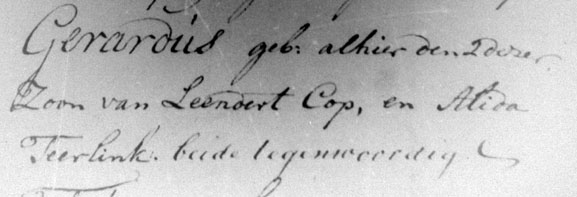 Gerardus geb: alhier den 2 dezer.
Zoon van Leendert Cop, en Alida
Teerlink. beide tegenwoordig.